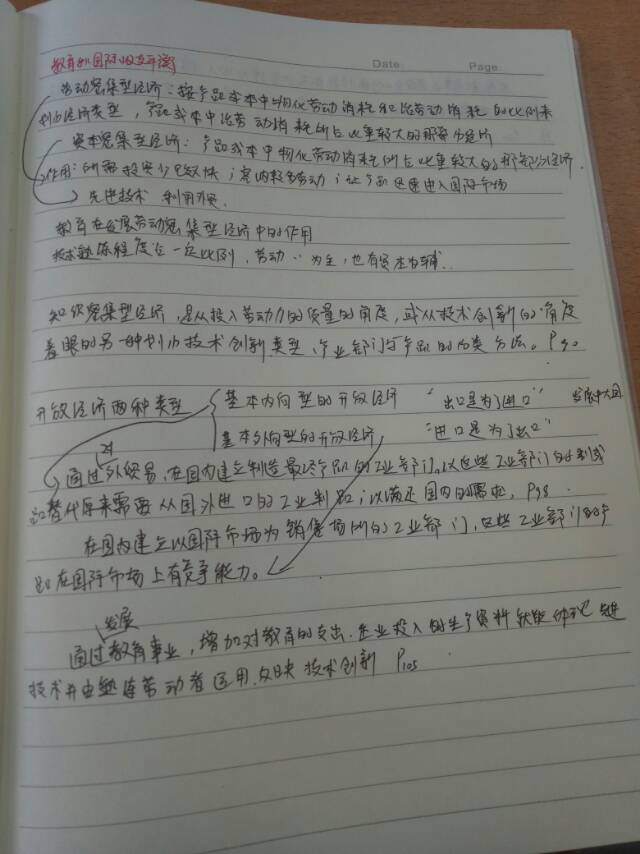 教育的国际收支平衡
Date:    Page:
劳动密集型经济：按产品成本中物化劳动消耗和活劳动消耗的比例来
划的经济类型，产品成本中活劳动消耗所占比重较大的那部分经济
资本密集型经济：产品成本中物化劳动消耗所占比重较大的那部分经济.
作用：所需投资少见效快；容纳较多劳动；让产品迅速进入国际市场
先进技术 利用外资.
教育在发展劳动密集型经济中的作用
技术熟练程度占一定比例，劳动〃为主，也有资本为辅.
知识密集型经济，是从投入劳动力的质量的角度，或从技术创新的角度
着眼的另一种划分技术创新类型、产业部门与产品的分类方法。P90
开放经济两种类型 基本内向型的开放经济 “出口是为了进口” 发展中大国
基本外向型的开放经济 “进口是为了出口”
对
通过外贸易，在国内建立制造最终产品的工业部门，以这些工业部门的制成
品替代原来需要从国外进口的工业制品；以满足国内的需应，P98.
在国内建立以国际市场为销售场所的工业部门，这些工业部门的产
品在国际市场上有竞争能力。
发展
通过教育事业，增加对教育的支出.企业投入的生产资料 体现 先进
技术并由熟练劳动者运用. 技术创新 P105